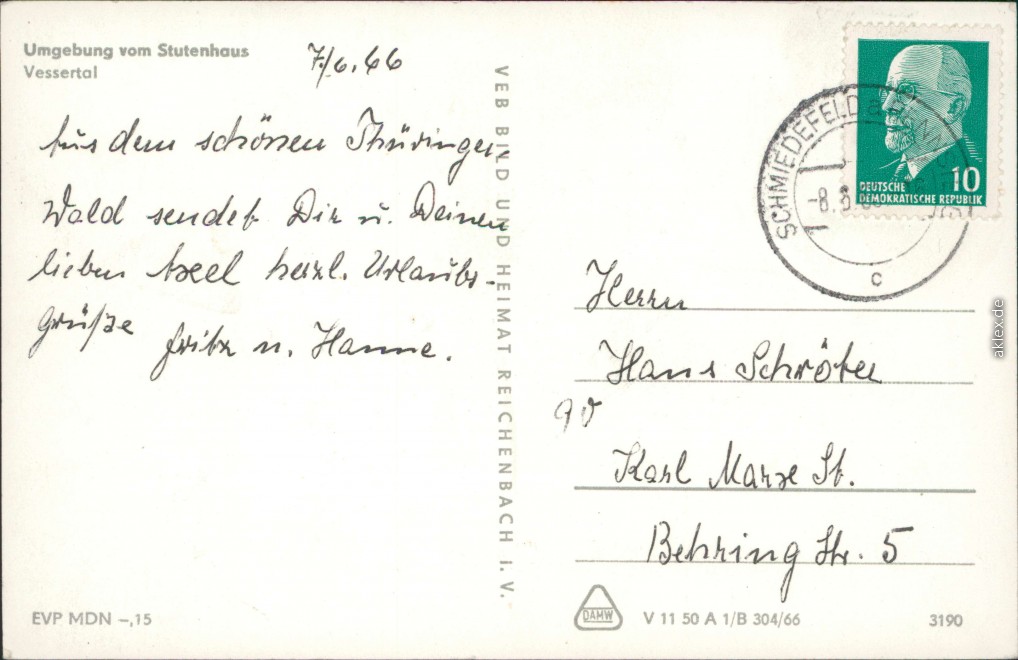 Umgebung vom Stutenhaus
Vessertal
7/6.66
Aus dem schönen Thüringer
Wald sendet Dir u. Deinen
lieben Axel herzl. Urlaubs-
grüße
Fritz u. Hanne.
VEB BILD UND HEIMAT REICHENBACH I. V.
SCHMIEDEFELD a
-8.6.
c
10
DEUTSCHE
DEMOKRATISCHE REPUBLIK
Herrn
Hans Schröter
90
Karl Marx St.
Behring Str. 5
EVP MDN -,15
DAMW
V 11 50 A 1/B 304/66
3190
aklex.de